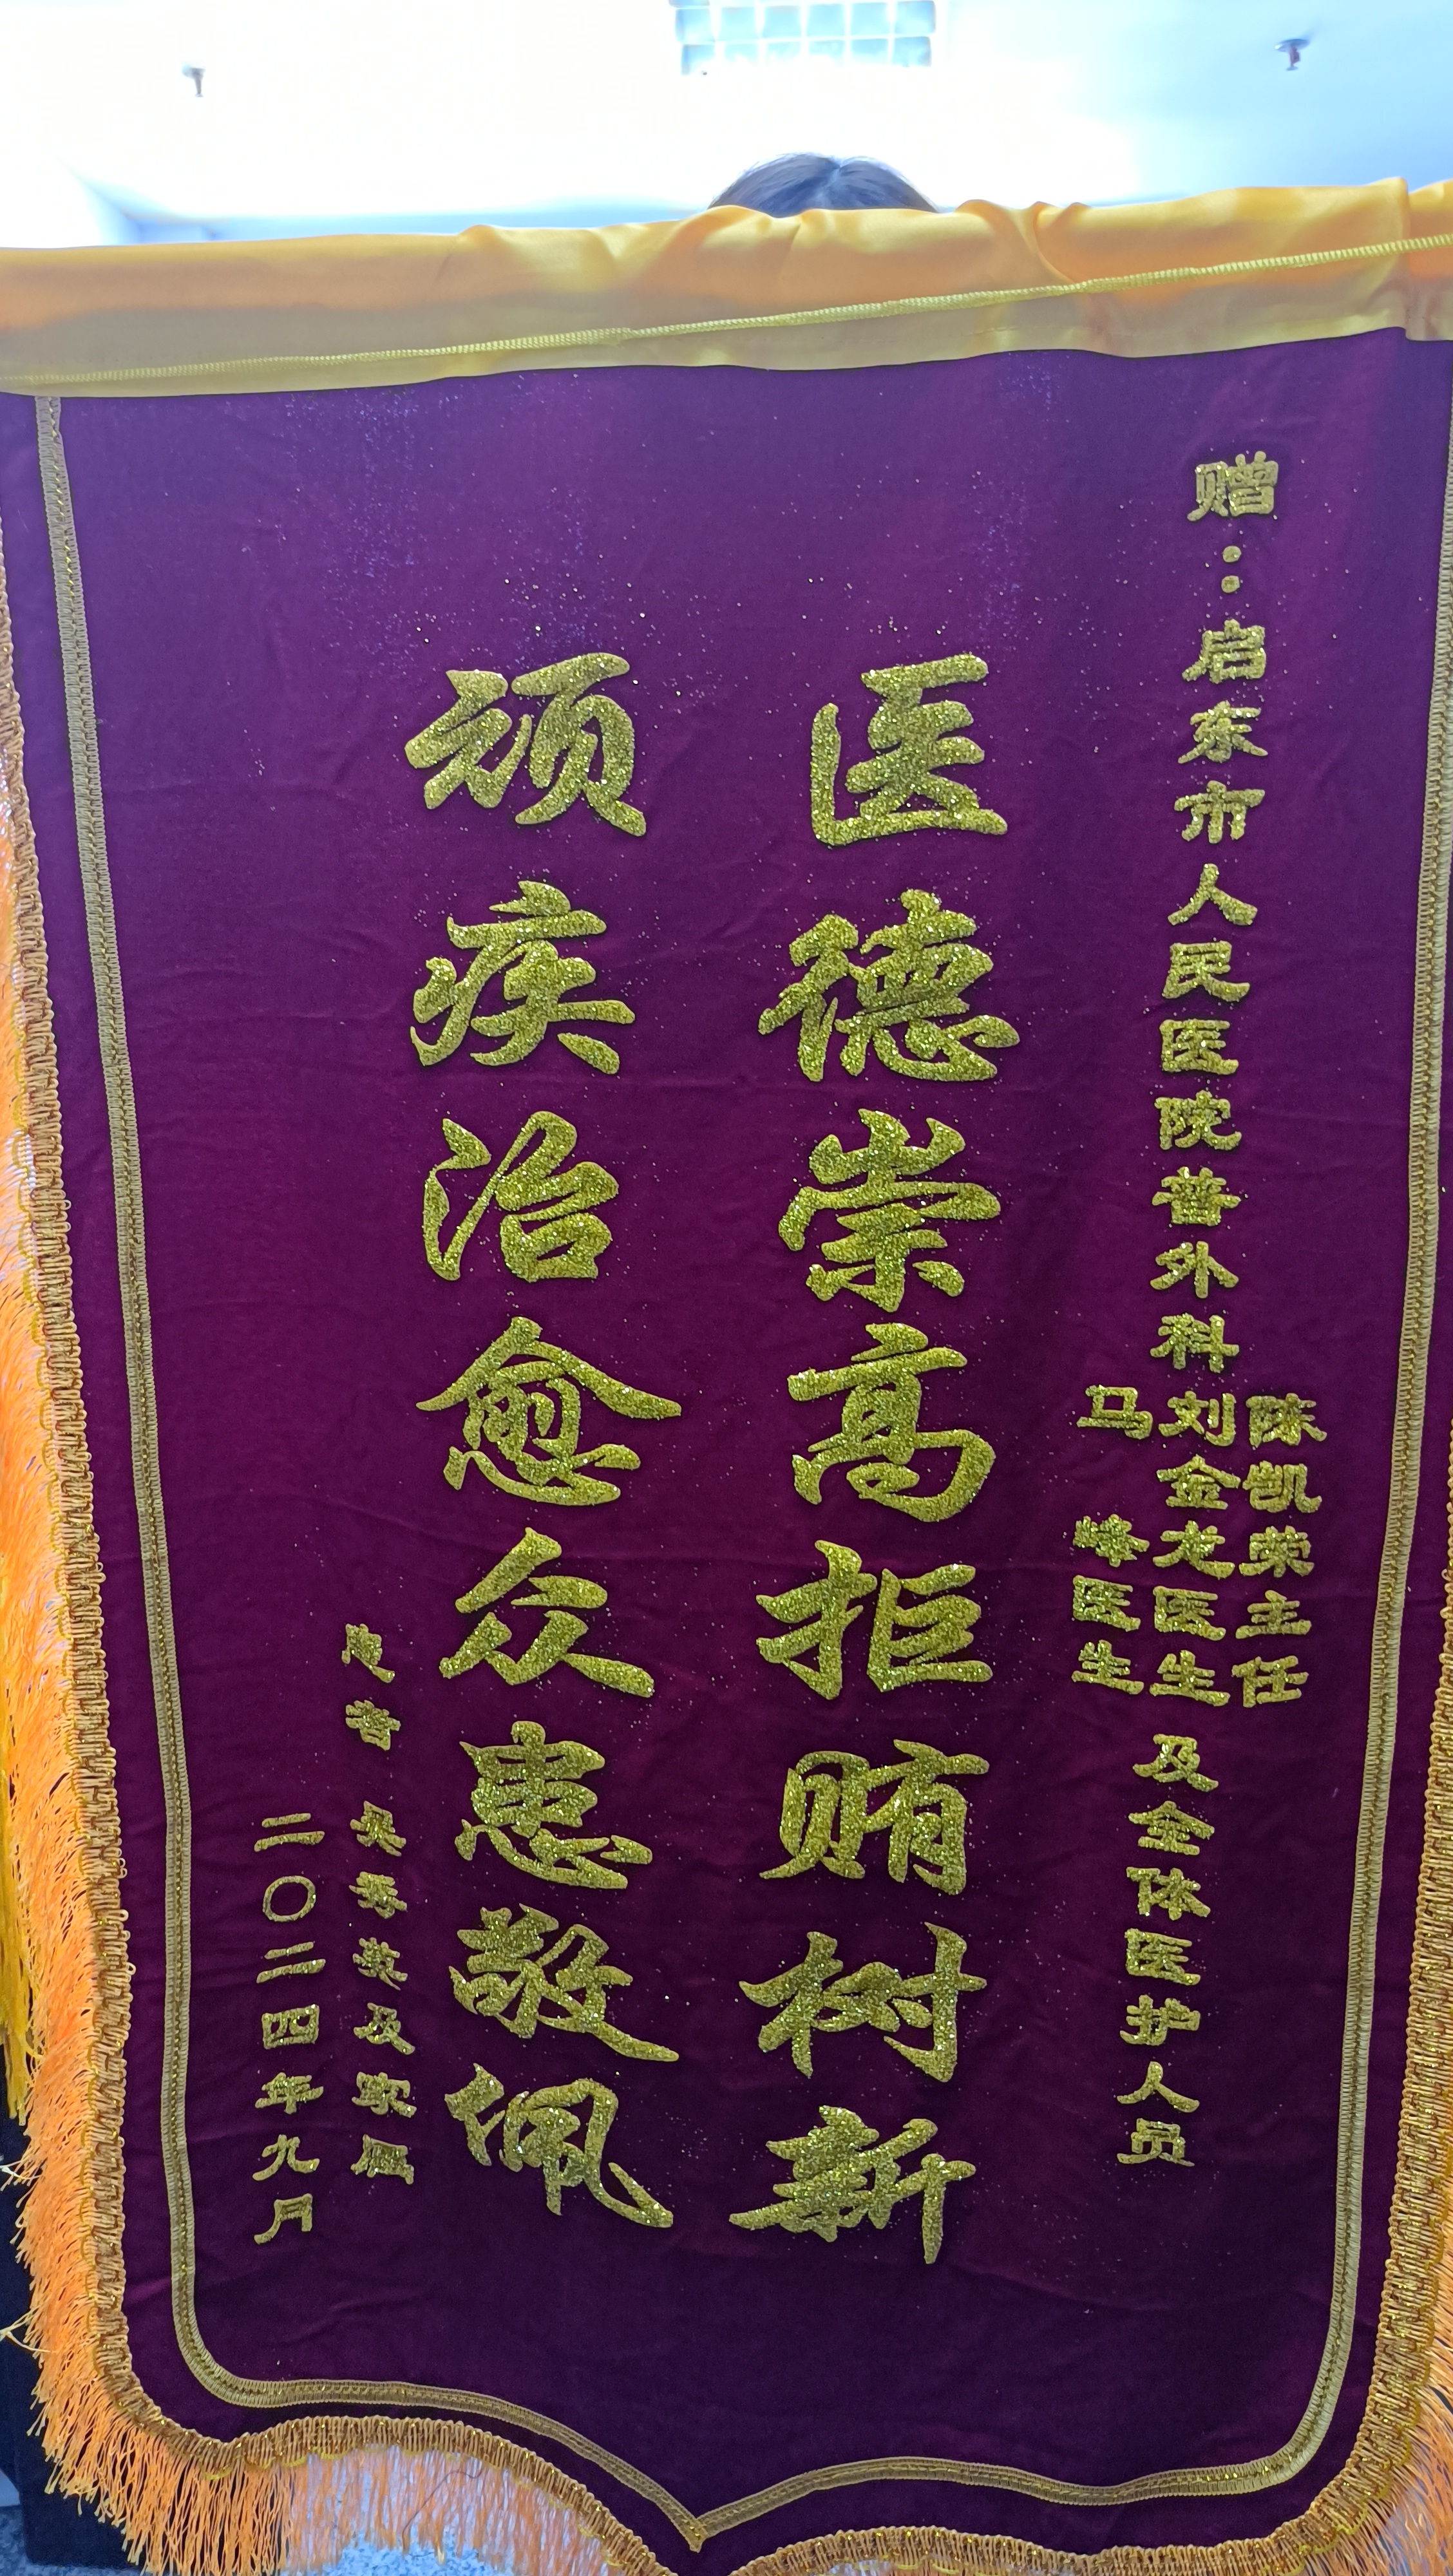 赠：启东市人民医院普外科
陈凯荣主任
刘金龙医生
马峰医生
及全体医护人员
医德崇高拒贿树新
顽疾治愈众患敬佩
患者 吴秀英及家属
二〇二四年九月